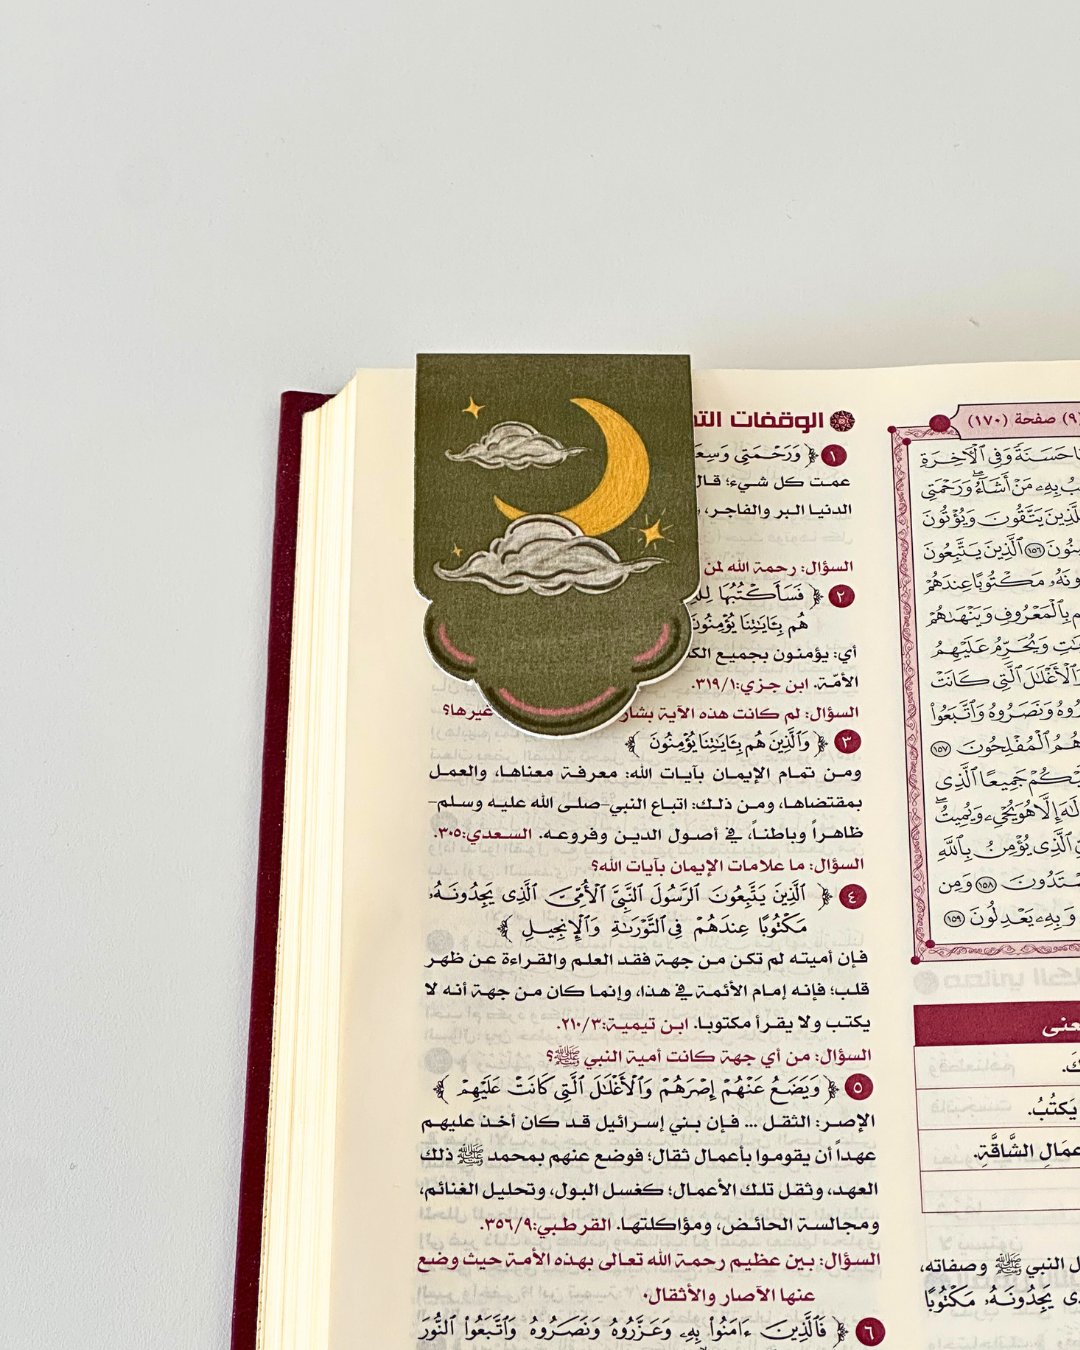 الوقفات
١ ﴿ وَرَحْمَتِي
عمت كل شيء؛ قال
الدنيا البر والفاجر،
السؤال: رحمة الله لمن
٢ ﴿ فَسَأَكْتُبُهَا
هُم بِـَٔايَـٰتِنَا يُؤْمِنُونَ
أي: يؤمنون بجميع
الأمّة. ابن جزي:٣١٩/١.
السؤال: لم كانت هذه الآية غيرها؟
٣ ﴿ وَٱلَّذِينَ هُم بِـَٔايَـٰتِنَا يُؤْمِنُونَ ﴾
ومن تمام الإيمان بآيات الله: معرفة معناها، والعمل
بمقتضاها، ومن ذلك: اتباع النبي-صلى الله عليه وسلم-
ظاهراً وباطناً، في أصول الدين وفروعه. السعدي:٣٠٥.
السؤال: ما علامات الإيمان بآيات الله؟
٤ ﴿ ٱلَّذِينَ يَتَّبِعُونَ ٱلرَّسُولَ ٱلنَّبِىَّ ٱلْأُمِّىَّ ٱلَّذِى يَجِدُونَهُۥ
مَكْتُوبًا عِندَهُمْ فِى ٱلتَّوْرَىٰةِ وَٱلْإِنجِيلِ ﴾
فإن أميته لم تكن من جهة فقد العلم والقراءة عن ظهر
قلب؛ فإنه إمام الأئمة في هذا، وإنما كان من جهة أنه لا
يكتب ولا يقرأ مكتوبا. ابن تيمية:٢١٠/٣.
السؤال: من أي جهة كانت أمية النبي ﷺ؟
٥ ﴿ وَيَضَعُ عَنْهُمْ إِصْرَهُمْ وَٱلْأَغْلَـٰلَ ٱلَّتِى كَانَتْ عَلَيْهِمْ ﴾
الإصر: الثقل ... فإن بني إسرائيل قد كان أخذ عليهم
عهداً أن يقوموا بأعمال ثقال؛ فوضع عنهم بمحمد ﷺ ذلك
العهد، وثقل تلك الأعمال؛ كغسل البول، وتحليل الغنائم،
ومجالسة الحائض، ومؤاكلتها. القرطبي:٣٥٦/٩.
السؤال: بين عظيم رحمة الله تعالى بهذه الأمة حيث وضع
عنها الآصار والأثقال.
٦ ﴿ فَٱلَّذِينَ ءَامَنُوا۟ بِهِۦ وَعَزَّرُوهُ وَنَصَرُوهُ وَٱتَّبَعُوا۟ ٱلنُّورَ
صفحة (١٧٠)
حَسَنَةً وَفِى ٱلْـَٔاخِرَةِ
بِهِۦ مَنْ أَشَآءُ وَرَحْمَتِى
يَتَّقُونَ وَيُؤْتُونَ
١٥٦ ٱلَّذِينَ يَتَّبِعُونَ
مَكْتُوبًا عِندَهُمْ
بِٱلْمَعْرُوفِ وَيَنْهَىٰهُمْ
وَيُحَرِّمُ عَلَيْهِمُ
وَٱلْأَغْلَـٰلَ ٱلَّتِى كَانَتْ
وَنَصَرُوهُ وَٱتَّبَعُوا۟
هُمُ ٱلْمُفْلِحُونَ ١٥٧
جَمِيعًا ٱلَّذِى
إِلَّا هُوَ يُحْىِۦ وَيُمِيتُ
ٱلَّذِى يُؤْمِنُ بِٱللَّهِ
١٥٨ وَمِن
وَبِهِۦ يَعْدِلُونَ ١٥٩
يَكتُبُ.
الشَّاقَّةِ.
النبي ﷺ وصفاته،
يَجِدُونَهُۥ مَكْتُوبًا